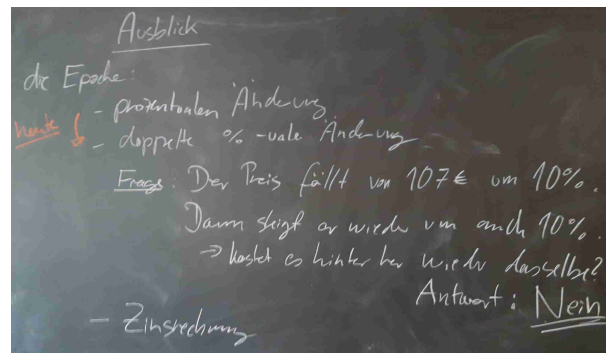 Ausblick
die Epoche:
- prozentualen Änderung
heute
- doppelte %-uale Änderung
Frage: Der Preis fällt von 107€ um 10%.
Dann steigt er wieder um auch 10%.
→ kostet es hinterher wieder dasselbe?
Antwort: Nein
- Zinsrechnung